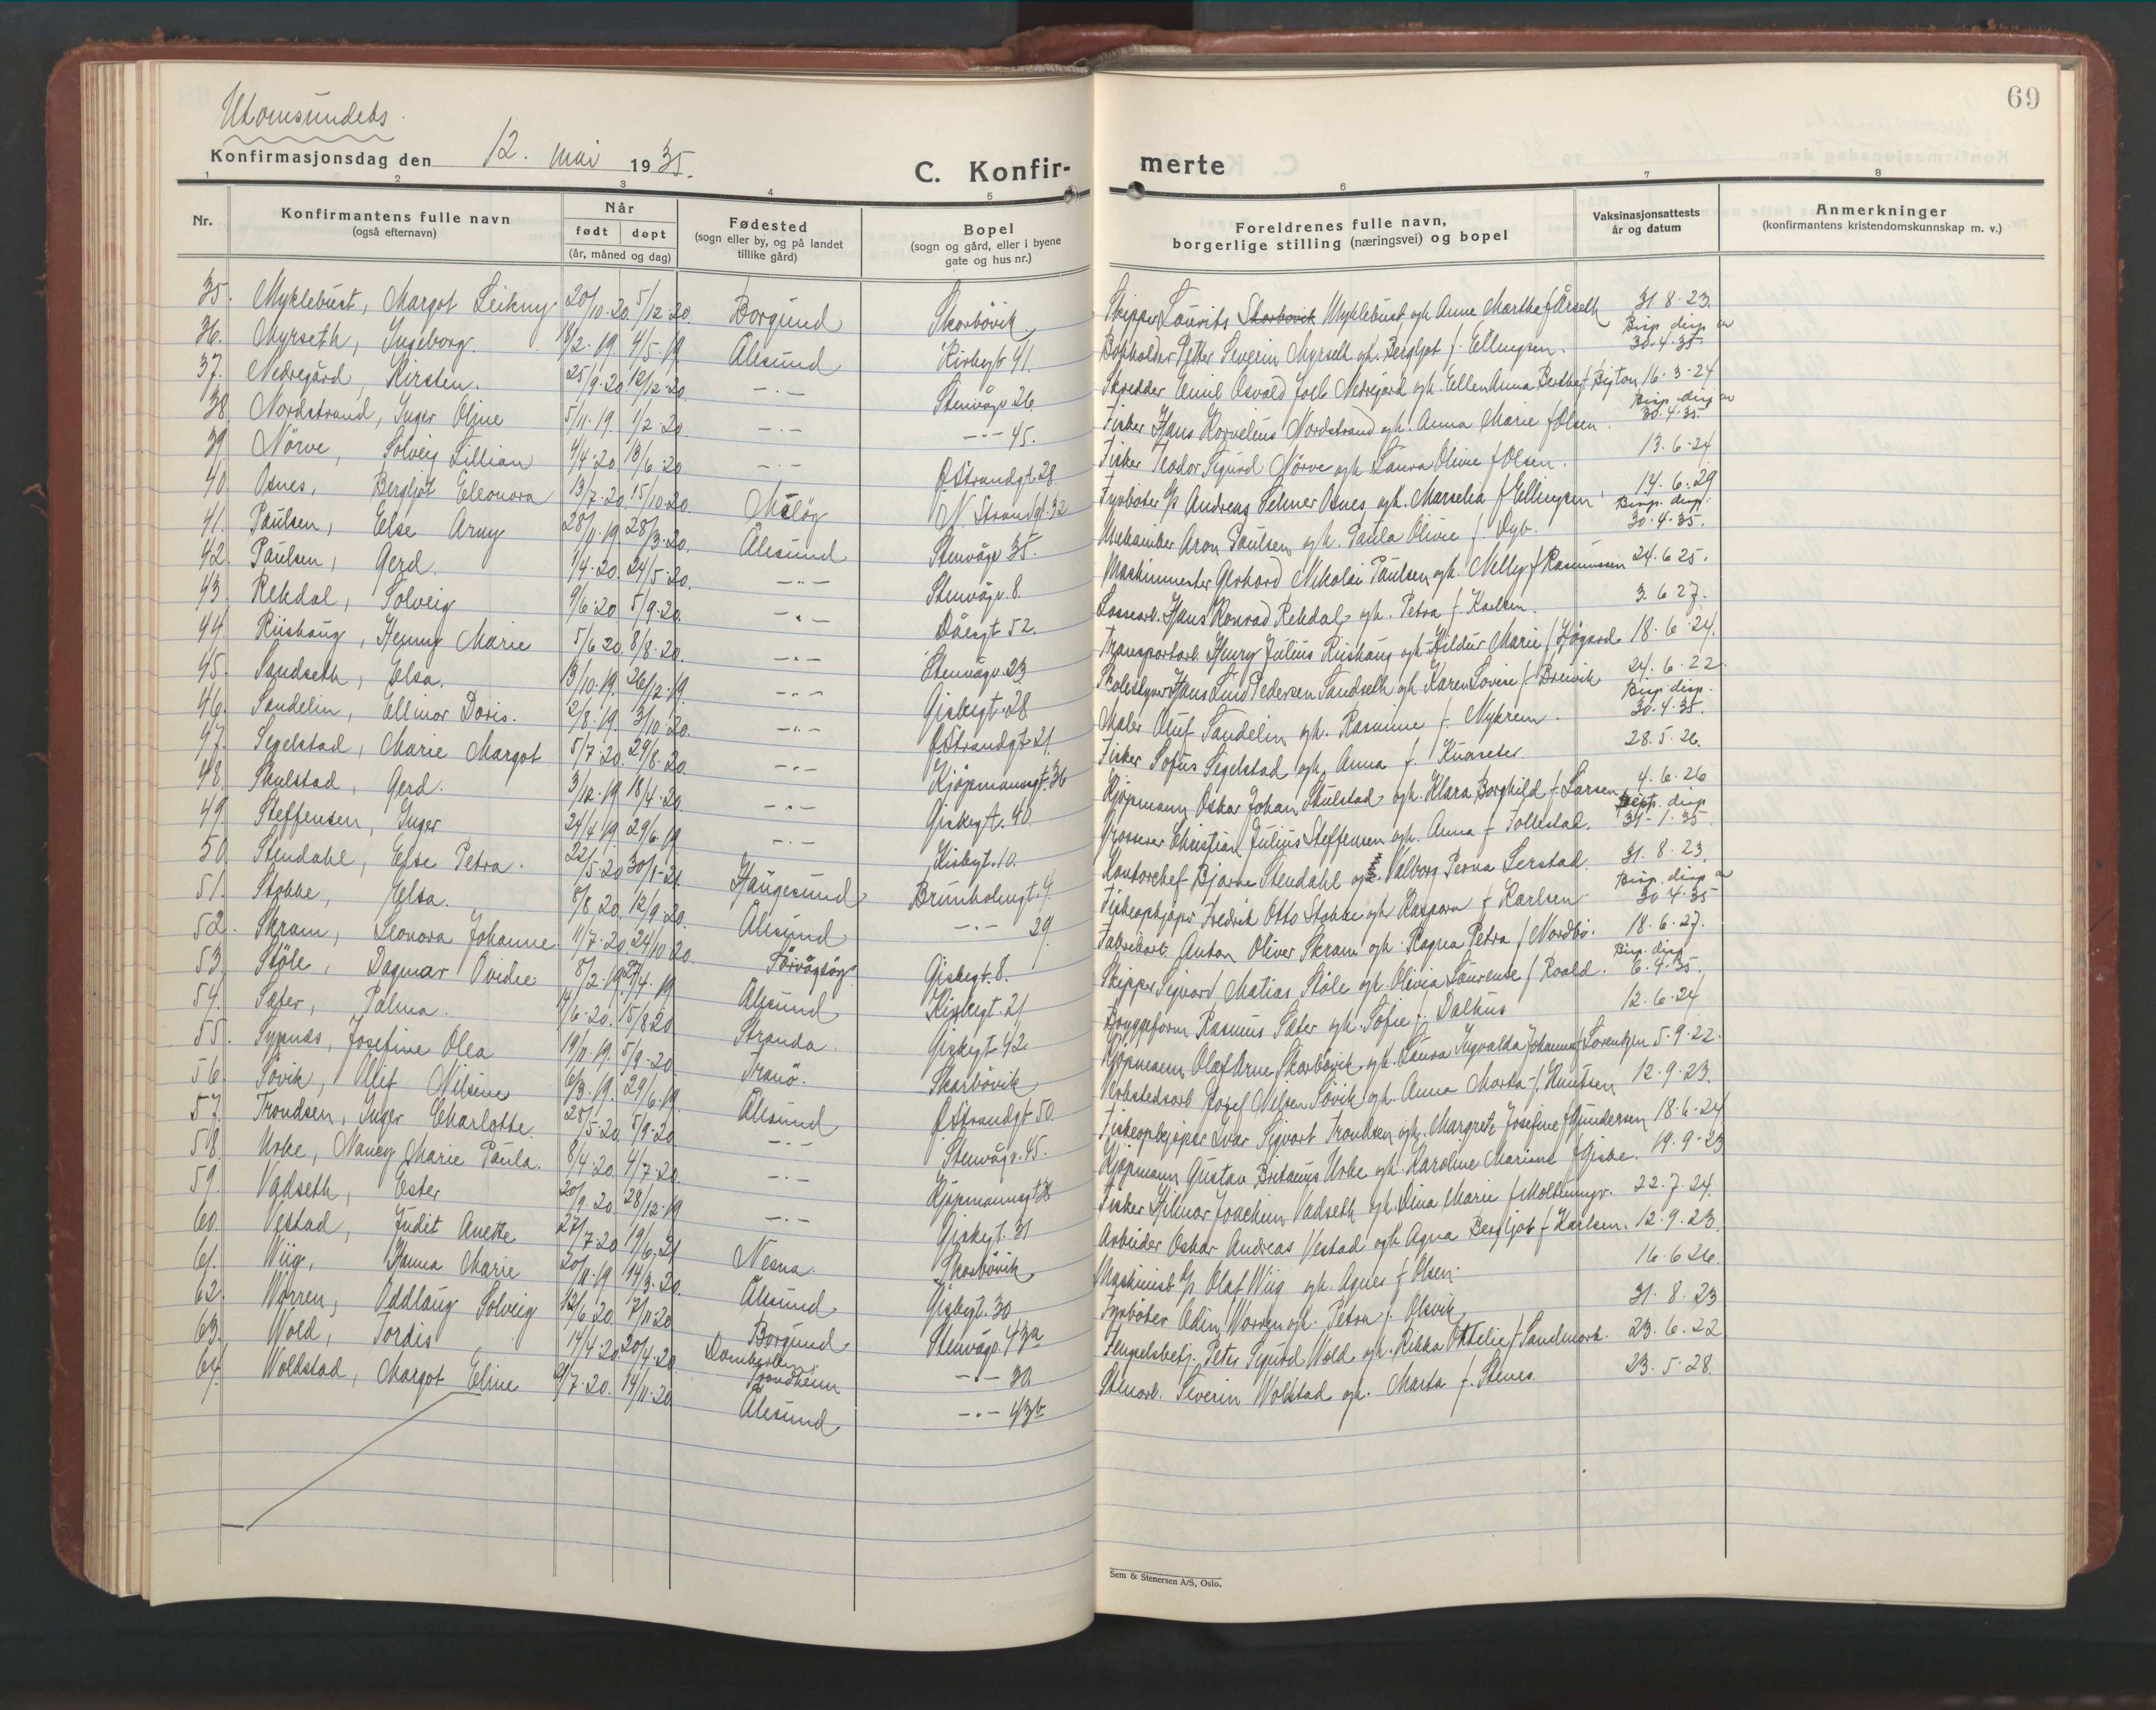 69
Utomsundets.
Konfirmasjonsdag den 12. mai 1935.
C. Konfir- merte
1 2 3 4 5 6 7 8
Nr.
Konfirmantens fulle navn
(også efternavn)
Når
født døpt
(år, måned og dag)
Fødested
(sogn eller by, og på landet
tillike gård)
Bopel
(sogn og gård, eller i byene
gate og hus nr.)
Foreldrenes fulle navn,
borgerlige stilling (næringsvei) og bopel
Vaksinasjonsattests
år og datum
Anmerkninger
(konfirmantens kristendomskunnskap m. v.)
35. Myklebust, Margot Leikny 20/10.20. 5/12.20. Borgund Skarbövik Skipper Lauritz Skarbövik Myklebust og h. Anne Martha f. Årseth 31.8.23.
36. Myrseth, Ingeborg. 18/2.19. 4/5.19 Ålesund Kirkegt 41. Petter Severin Myrseth og h. Bergljot f. Ellingsen. Bisp. disp. av 30.4.35.
37. Nedregård, Kirsten. 25/9.20 12/12.20. -.- Stenvågv 26. Skredder Emil Osvald Nedregård og h. Ellen Anna Berthe f. 16.3.24
38 Nordstrand, Inger Oline 5/11.19. 1/2.20. -.- -.- 45. Fisker Hans Kornelius Nordstrand og h. Anna Marie f. Olsen. Bisp. disp av 30.4.35.
39. Nörve, Solveig Lillian 4/4.20. 13/6.20 -.- Ö Strandgt. 28 Fisker Teodor Sigurd Nörve og h. Laura Olivie f. Olsen. 13.6.24.
40. Osnes, Bergljot Eleonora 13/7.20. 15/10.20. Målöy N. Strandgt. 32 Fyrböter Andreas Selmer Osnes og h. Marselia f. Ellingsen 14.6.29
41. Paulsen, Else Arny 28/11.19. 28/3.20. Ålesund Stenvågv 35. Mekaniker Aron Paulsen og h. Paula Olivie f. Dyb. Bisp. disp. 30.4.35.
42. Paulsen, Gerd. 1/4.20. 24/5.20. -.- Stenvågv. 8. Maskinmester Gerhard Nikolai Paulsen og h. Nelly f. Rasmussen 24.6 25.
43. Rekdal, Solveig 9/6.20 5/9.20. -.- Dåesgt 52. Lossearb. Hans Konrad Rekdal og h. Petra f. Karlsen. 3.6 27.
44. Riishaug, Henny Marie 5/6 20. 8/8.20. -.- Stenvågv. 23 Transportarb. Henry Julius Riishaug og h. Hildur Marie f. Hågard 18.6.24.
45. Sandseth, Elsa. 13/10.19. 26/12.19. -.- Giskegt. 28 Hans Lind Pedersen Sandseth og h. Karen Lovise f. Breivik 24.6.22.
46. Sandelin, Ellinor Doris. 2/8.19. 3/10.20. -.- Ö Strandgt. 21. Maler Oluf Sandelin og h. Rasmine f. Nykrem. Bisp. disp. 30.4.35.
47. Segelstad, Marie Margot 5/7.20. 29/8.20. -.- Kjöpmannsgt. 36 Fisker Sofus Segelstad og h. Anna f. 28.5.26.
48. Skulstad, Gerd. 3/12.19. 18/4.20. -.- Giskegt. 40 Kjöpmann Oskar Johan Skulstad og h. Klara Borghild f. Larsen 4.6.26
49 Steffensen, Inger 24/4.19. 29/6.19. -.- Kirkegt. 10. Grosserer Christian Julius Steffensen og h. Anna f. Follestad. Dept. disp 31-1.35.
50. Stendahl, Else Petra. 22/5.20 30/1-21. Haugesund Brunholmgt. 4. Kontorchef Bjarne Stendahl og h. Valborg Perna Serstad. 31.8.23.
51. Stokke, Elsa. 8/8.20. 12/9.20. Ålesund -.- 29. Fiskeopkjöper Fredrik Otto Stokke og h. Kaspara f. Karlsen Bisp. disp av 30.4.35
52. Skram, Leonora Johanne 11/7.20. 24/10.20. Sörvågöy Giskegt. 8. Fabrikarb. Anton Oliver Skram og h. Ragna Petra f. Nordbö. 18.6.27.
53. Stöle, Dagmar Ovidie. 8/2.19. 27/4.19 Ålesund Kirkegt. 21 Skipper Sigvard Matias Stöle og h. Olivia Laurense f. Roald. Bisp. disp. 6.4.35.
54. Sæter, Palma. 14/6.20. 15/8.20 Stranda Giskegt. 42 Bryggeform Rasmus Sæter og h. Sofie f. Dalhus 12.6.24
55. Sypnes, Josefine Olea 19/11.19. 5/9.20. Tranö. Skarbövik Kjöpmann Olaf Arne Skarbövik og h. Laura Ingvalda Johanna f. Lorentzen 5.9.22.
56. Sövik, Ollif Nilsine 6/3.19. 29/6.19. Ålesund Ö Strandgt 50. Verkstedsarb Josef Nilsen Sövik og h. Anna Marta f. Knutsen 12.9.23.
57. Trondsen, Inger Charlotte. 28/5.20. 5/9.20 -.- Stenvågv. 45. Fiskeopkjöper Ivar Sigvart Trondsen og h. Margrete Josefine f. Gundersen 18.6.24
58. Urke, Nancy Marie Paula. 8/4.20. 4/7.20. -.- Kjöpmannsgt. Kjöpmann Gustav Urke og h. Karoline Mariane f. Giske. 19.9.23
59. Vadseth, Ester 20/9.20 28/12.19 -.- Giskegt. 31 Fisker Hilmar Joachim Vadseth og h. Dina Marie f. Moltumyr. 22.7.24.
60. Vestad, Judit Anette 27/7.20 19/6.21 Nesna. Skarbövik Arbeider Oskar Andreas Vestad og h. Agna Bergljot f. Karlsen. 12.9.23.
61. Wiig, Hanna Marie 20/11.19 14/3.20. Ålesund Giskegt. 30 Maskinist Olaf Wiig og h. Agnes f. Olsen. 16.6 26.
62. Warren, Oddlaug Solveig 12/6.20. 7/11.20 Borgund Stenvågv. 43a Fyrböter Odin Warren og h. Petra f. Olsvik 31.8.23
63. Wold, Tordis 14/4.20. 20/4.20. Trondheim -.- 30 Fengselsbetj. Peter Sigurd Wold og h. Rikka Ottelie f. Sandmark. 23.6.22
64. Woldstad, Margot Eline 21/7.20. 14/11.20 Ålesund -.- 43b Stenarb. Severin Woldstad og h. Marta f. Stenes. 23.5.28.
Sem & Stenersen A/S, Oslo.